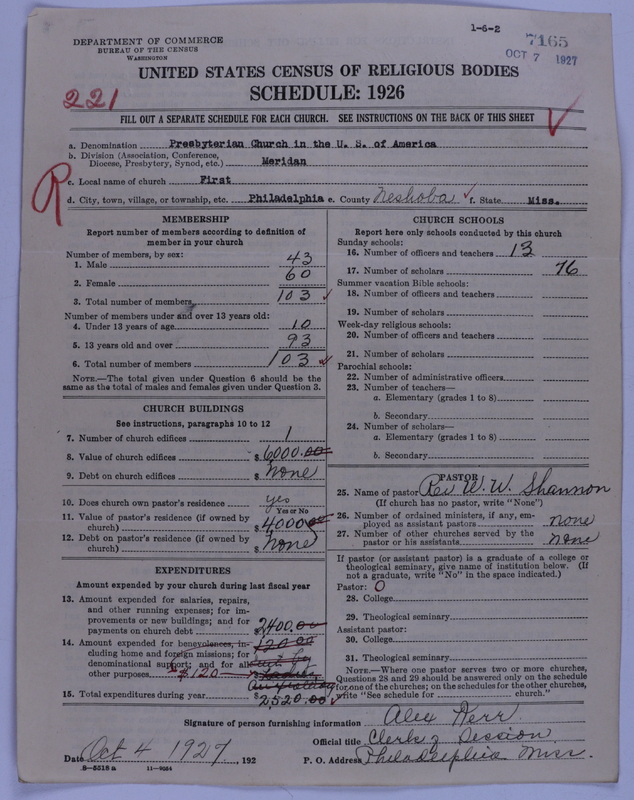 1-6-2
7165
OCT 7 1927
DEPARTMENT OF COMMERCE
BUREAU OF THE CENSUS
WASHINGTON
UNITED STATES CENSUS OF RELIGIOUS BODIES
SCHEDULE: 1926
221
FILL OUT A SEPARATE SCHEDULE FOR EACH CHURCH. SEE INSTRUCTIONS ON THE BACK OF THIS SHEET
a. Denomination Presbyterian Church in the U. S. of America
b. Division (Association, Conference, Diocese, Presbytery, Synod, etc.) Meridan
R
c. Local name of church First
d. City, town, village, or township, etc. Philadelphia e. County Neshoba f. State Miss.
MEMBERSHIP
Report number of members according to definition of
member in your church
Number of members, by sex:
1. Male 43
2. Female 60
3. Total number of members 103
Number of members under and over 13 years old:
4. Under 13 years of age 10
5. 13 years old and over 93
6. Total number of members 103
NOTE.—The total given under Question 6 should be
same as the total of males and females given under Question 3.
CHURCH BUILDINGS
See instructions, paragraphs 10 to 12
7. Number of church edifices 1
8. Value of church edifices $ 6000.00
9. Debt on church edifices $ None
10. Does church own pastor's residence yes
Yes or No
11. Value of pastor's residence (if owned by
church) $ 4000.00
12. Debt on pastor's residence (if owned by
church) $ None
EXPENDITURES
Amount expended by your church during last fiscal year
13. Amount expended for salaries, repairs,
and other running expenses; for im-
provements or new buildings; and for
payments on church debt $ 2400.00
14. Amount expended for benevolences, in- 120.00
cluding home and foreign missions; for
denominational support; and for all
other purposes $120 $ Ladies
Auxiliary
15. Total expenditures during year $ 2,520.00
CHURCH SCHOOLS
Report here only schools conducted by this church
Sunday schools:
16. Number of officers and teachers 13
17. Number of scholars 76
Summer vacation Bible schools:
18. Number of officers and teachers
19. Number of scholars
Week-day religious schools:
20. Number of officers and teachers
21. Number of scholars
Parochial schools:
22. Number of administrative officers
23. Number of teachers—
a. Elementary (grades 1 to 8)
b. Secondary
24. Number of scholars—
a. Elementary (grades 1 to 8)
b. Secondary
PASTOR
25. Name of pastor Rev W. W. Shannon
(If church has no pastor, write "None")
26. Number of ordained ministers, if any, em-
ployed as assistant pastors none
27. Number of other churches served by the
pastor or his assistants none
If pastor (or assistant pastor) is a graduate of a college or
theological seminary, give name of institution below. (If
not a graduate, write "No" in the space indicated.)
Pastor: O
28. College
29. Theological seminary
Assistant pastor:
30. College
31. Theological seminary
NOTE.—Where one pastor serves two or more churches,
Questions 28 and 29 should be answered only on the schedule
for one of the churches; on the schedules for the other churches,
write "See schedule for church."
Signature of person furnishing information Alex Kerr
Official title Clerk of Session
Date Oct 4 1927, 192 P. O. Address Philadelphia Miss.
8—5518 a 11—9054